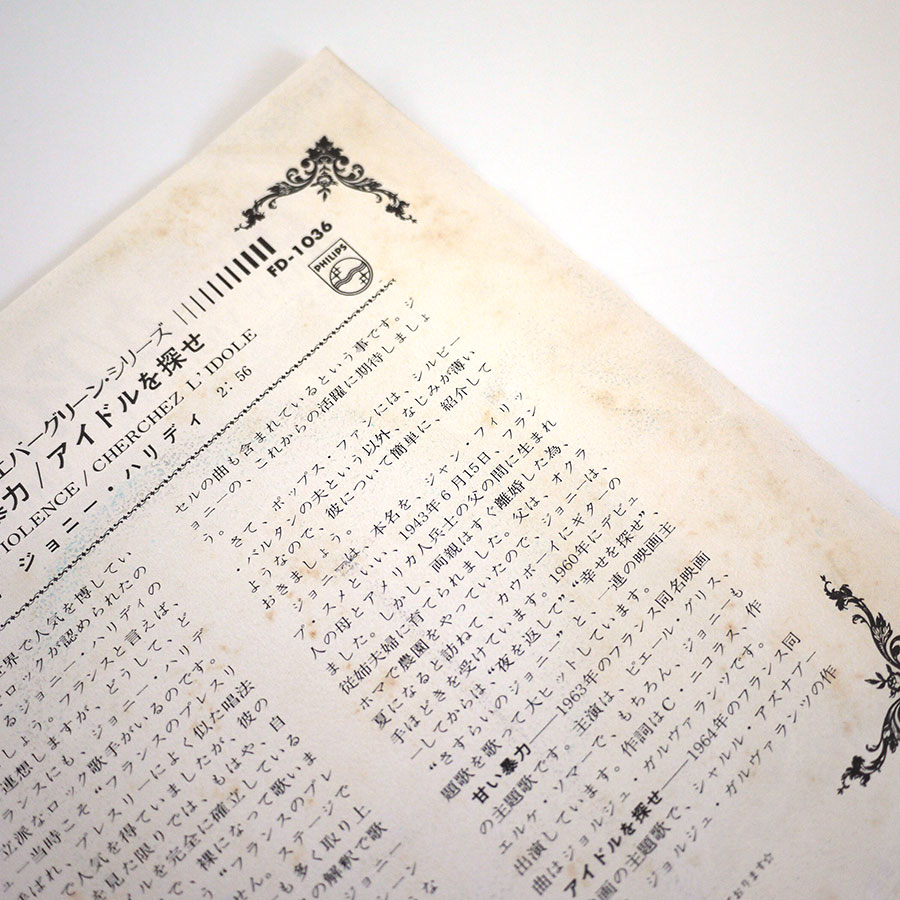 FD-1036
PHILIPS
エバーグリーン・シリーズ
暴力/アイドルを探せ
IOLENCE / CHERCHEZ L'IDOLE
ジョニー・ハリデイ 2:56
世界で人気を博してい
ロックが認められたの
るジョニー・ハリデイの
しょう。フランスと言えば、
連想しますが、どうして、ど
ランスにも、ジョニー・ハリデ
立派なロック歌手がいるのです。
ュー当時こそ“フランスのプレスリ
ばれ、プレスリーによく似た唱法
で人気を得ていましたが、彼の
を見た限りでは、もはや、自
ルを完全に確立している
で、裸になって歌いま
う“フランスのプレ
せん。ステージで
も多く取り上
の解釈で歌
ジョニー
シーン
セルの曲も含まれているという事です。ジ
ョニーの、これからの活躍に期待しましょ
う。
さて、ポップス・ファンには、シルビー
バルタンの夫という以外、なじみが薄い
ようなので、彼について簡単に、紹介して
おきましょう。
ジョニーは、本名を、ジャン・フィリッ
プ・スメといい、1943年6月15日、フラン
人の母とアメリカ人兵士の父の間に生まれ
ました。しかし、両親はすぐ離婚した為、
従姉夫婦に育てられました。父は、オクラ
ホマで農園をやっていたので、ジョニーは、
夏になると訪ねて、カウボーイにギターの
手ほどきを受けています。1960年にデビュ
ーしてからは“夜を返して”、幸せを探せ”、
“さすらいのジョニー”と、一連の映画主
題歌を歌って大ヒットしています。
甘い暴力——1963年のフランス同名映画
の主題歌です。主演は、ピエール・ブリス、
エルケ・ソマーで、もちろん、ジョニーも
出演しています。作詞はC・ニコラス、作
曲はジョルジュ・ガルヴァランツです。
アイドルを探せ——1964年のフランス同
画の主題歌で、シャルル・アズナブー
ジョルジュ・ガルヴァランツの作
おります☆